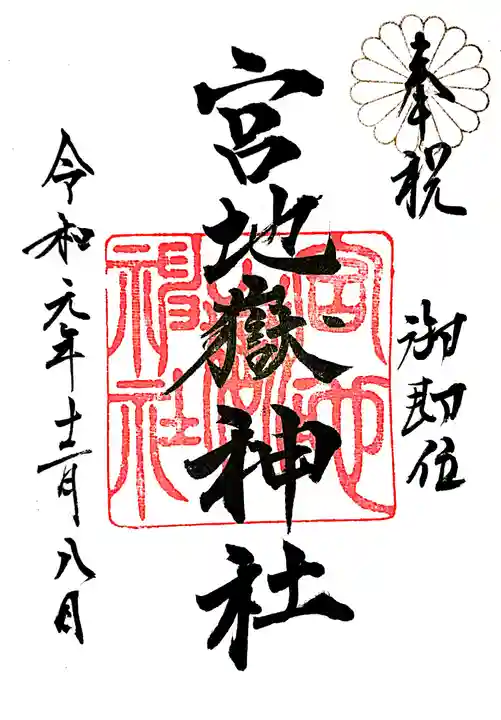 奉祝
御即位
宮地嶽神社
宮地嶽神社
令和元年十二月八日